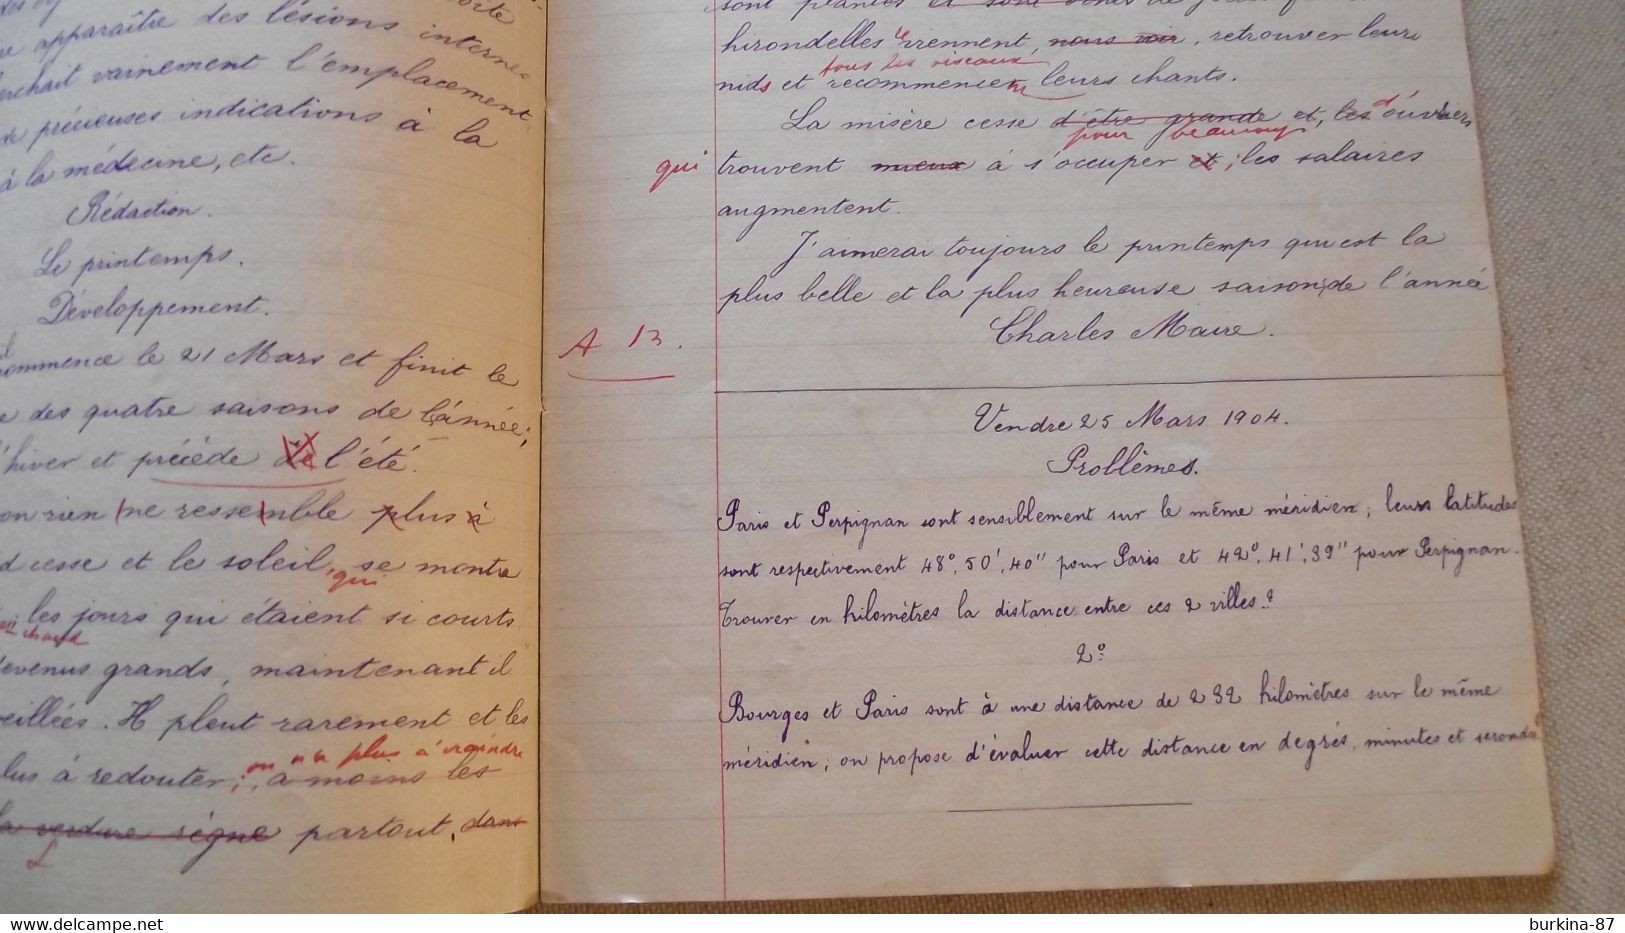 apparaître des lésions internes
vainement l'emplacement
de précieuses indications à la
à la médecine, etc.
Rédaction.
Le printemps.
Développement.
commence le 21 Mars et finit le
des quatre saisons de l'année;
l'hiver et précède de l'été.
rien ne ressemble plus à
cesse et le soleil, qui se montre
les jours qui étaient si courts
chaud
devenus grands, maintenant il
veillées. Il pleut rarement et les
on n'a plus à craindre
plus à redouter; à moins les
la verdure règne partout, dans
L
hirondelles reviennent, nous voir, retrouver leurs
tous les oiseaux
nids et recommencent leurs chants.
La misère cesse d'être grande et, les d'ouvriers
pour beaucoup
qui trouvent mieux à s'occuper et; les salaires
augmentent.
J'aimerai toujours le printemps qui est la
plus belle et la plus heureuse saison de l'année
Charles Maire.
A B.
Vendre 25 Mars 1904.
Problèmes.
Paris et Perpignan sont sensiblement sur le même méridien; leurs latitudes
sont respectivement 48°, 50', 40" pour Paris et 42°, 41', 39" pour Perpignan.
Trouver en kilomètres la distance entre ces 2 villes.?
2°
Bourges et Paris sont à une distance de 232 kilomètres sur le même
méridien; on propose d'évaluer cette distance en degrés, minutes et secondes
delcampe.net
burkina-87